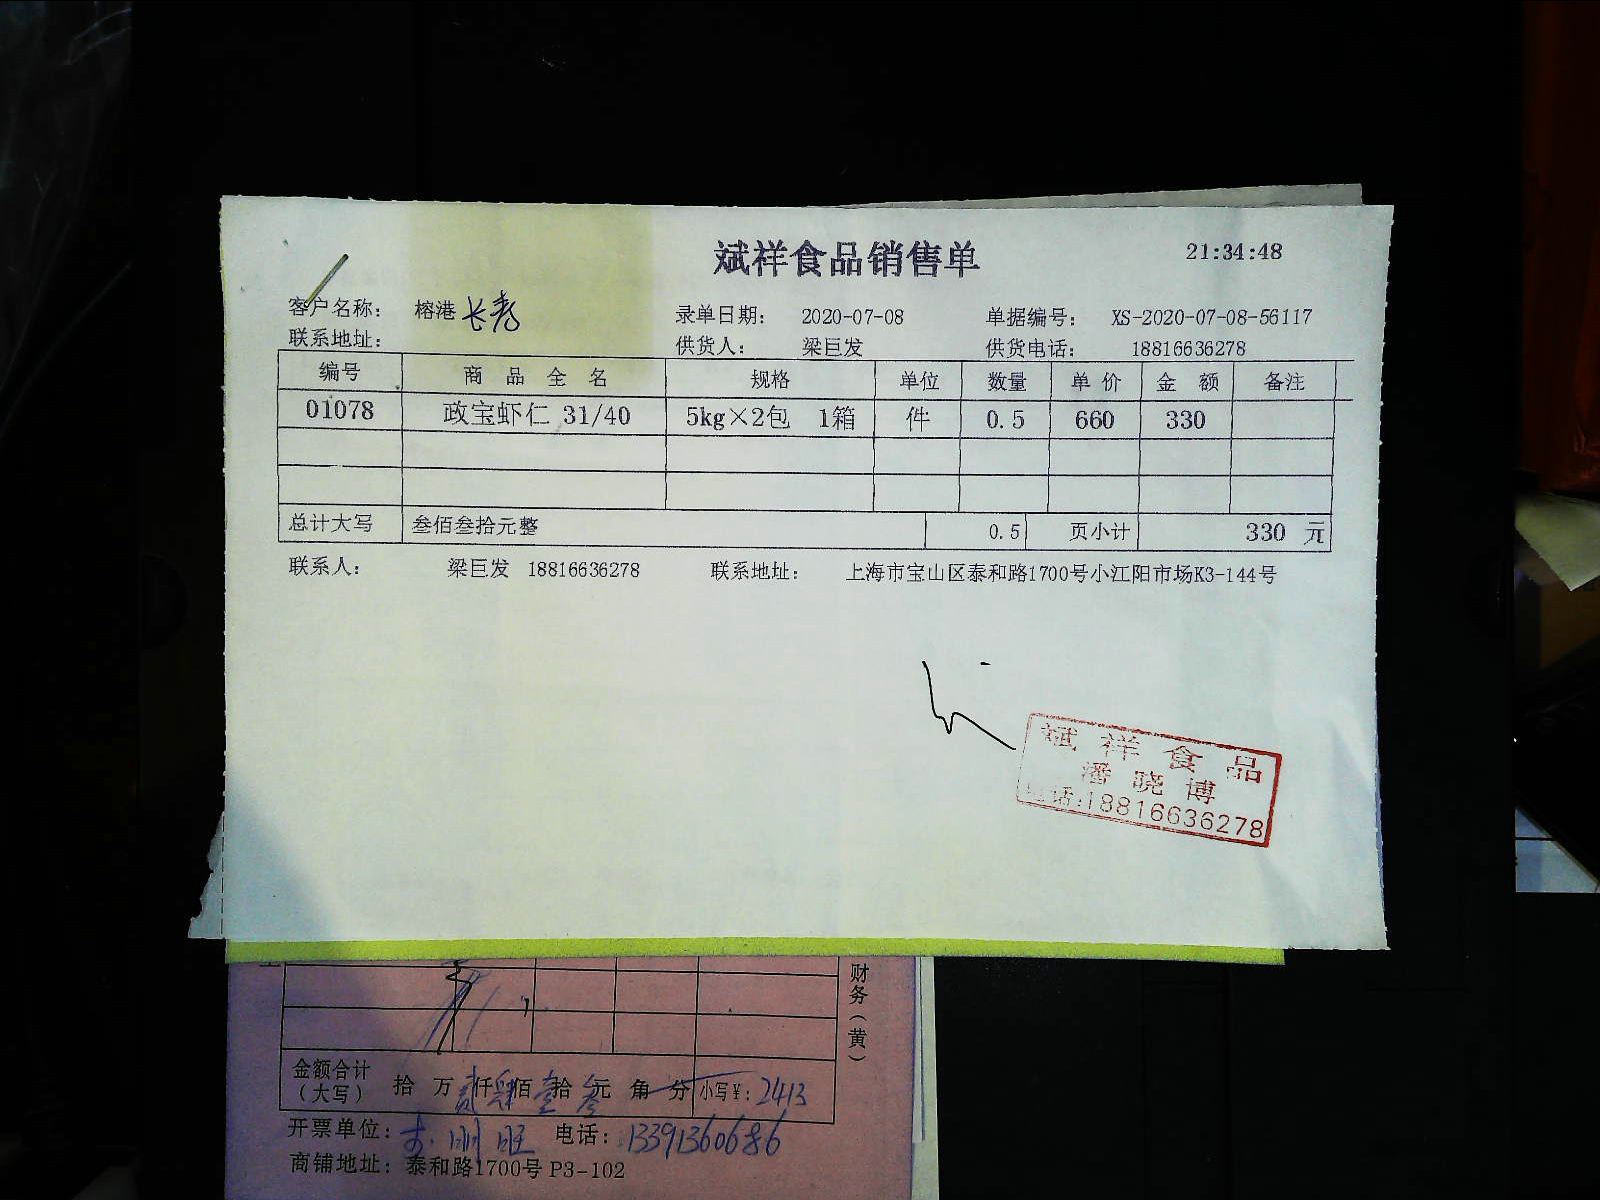 斌祥食品销售单 21:34:48
客户名称: 榕港 长寿 录单日期: 2020-07-08 单据编号: XS-2020-07-08-56117
联系地址: 供货人: 梁巨发 供货电话: 18816636278
编号 商品全名 规格 单位 数量 单价 金额 备注
01078 政宝虾仁 31/40 5kg×2包 1箱 件 0.5 660 330
总计大写 叁佰叁拾元整 0.5 页小计 330 元
联系人: 梁巨发 18816636278 联系地址: 上海市宝山区泰和路1700号小江阳市场K3-144号
斌祥食品
潘晓博
电话:18816636278
财务(黄)
金额合计
(大写) 拾 万 贰仟肆佰壹拾叁元 角 分 小写¥: 2413
开票单位: 电话: 13391360686
商铺地址: 泰和路1700号 P3-102